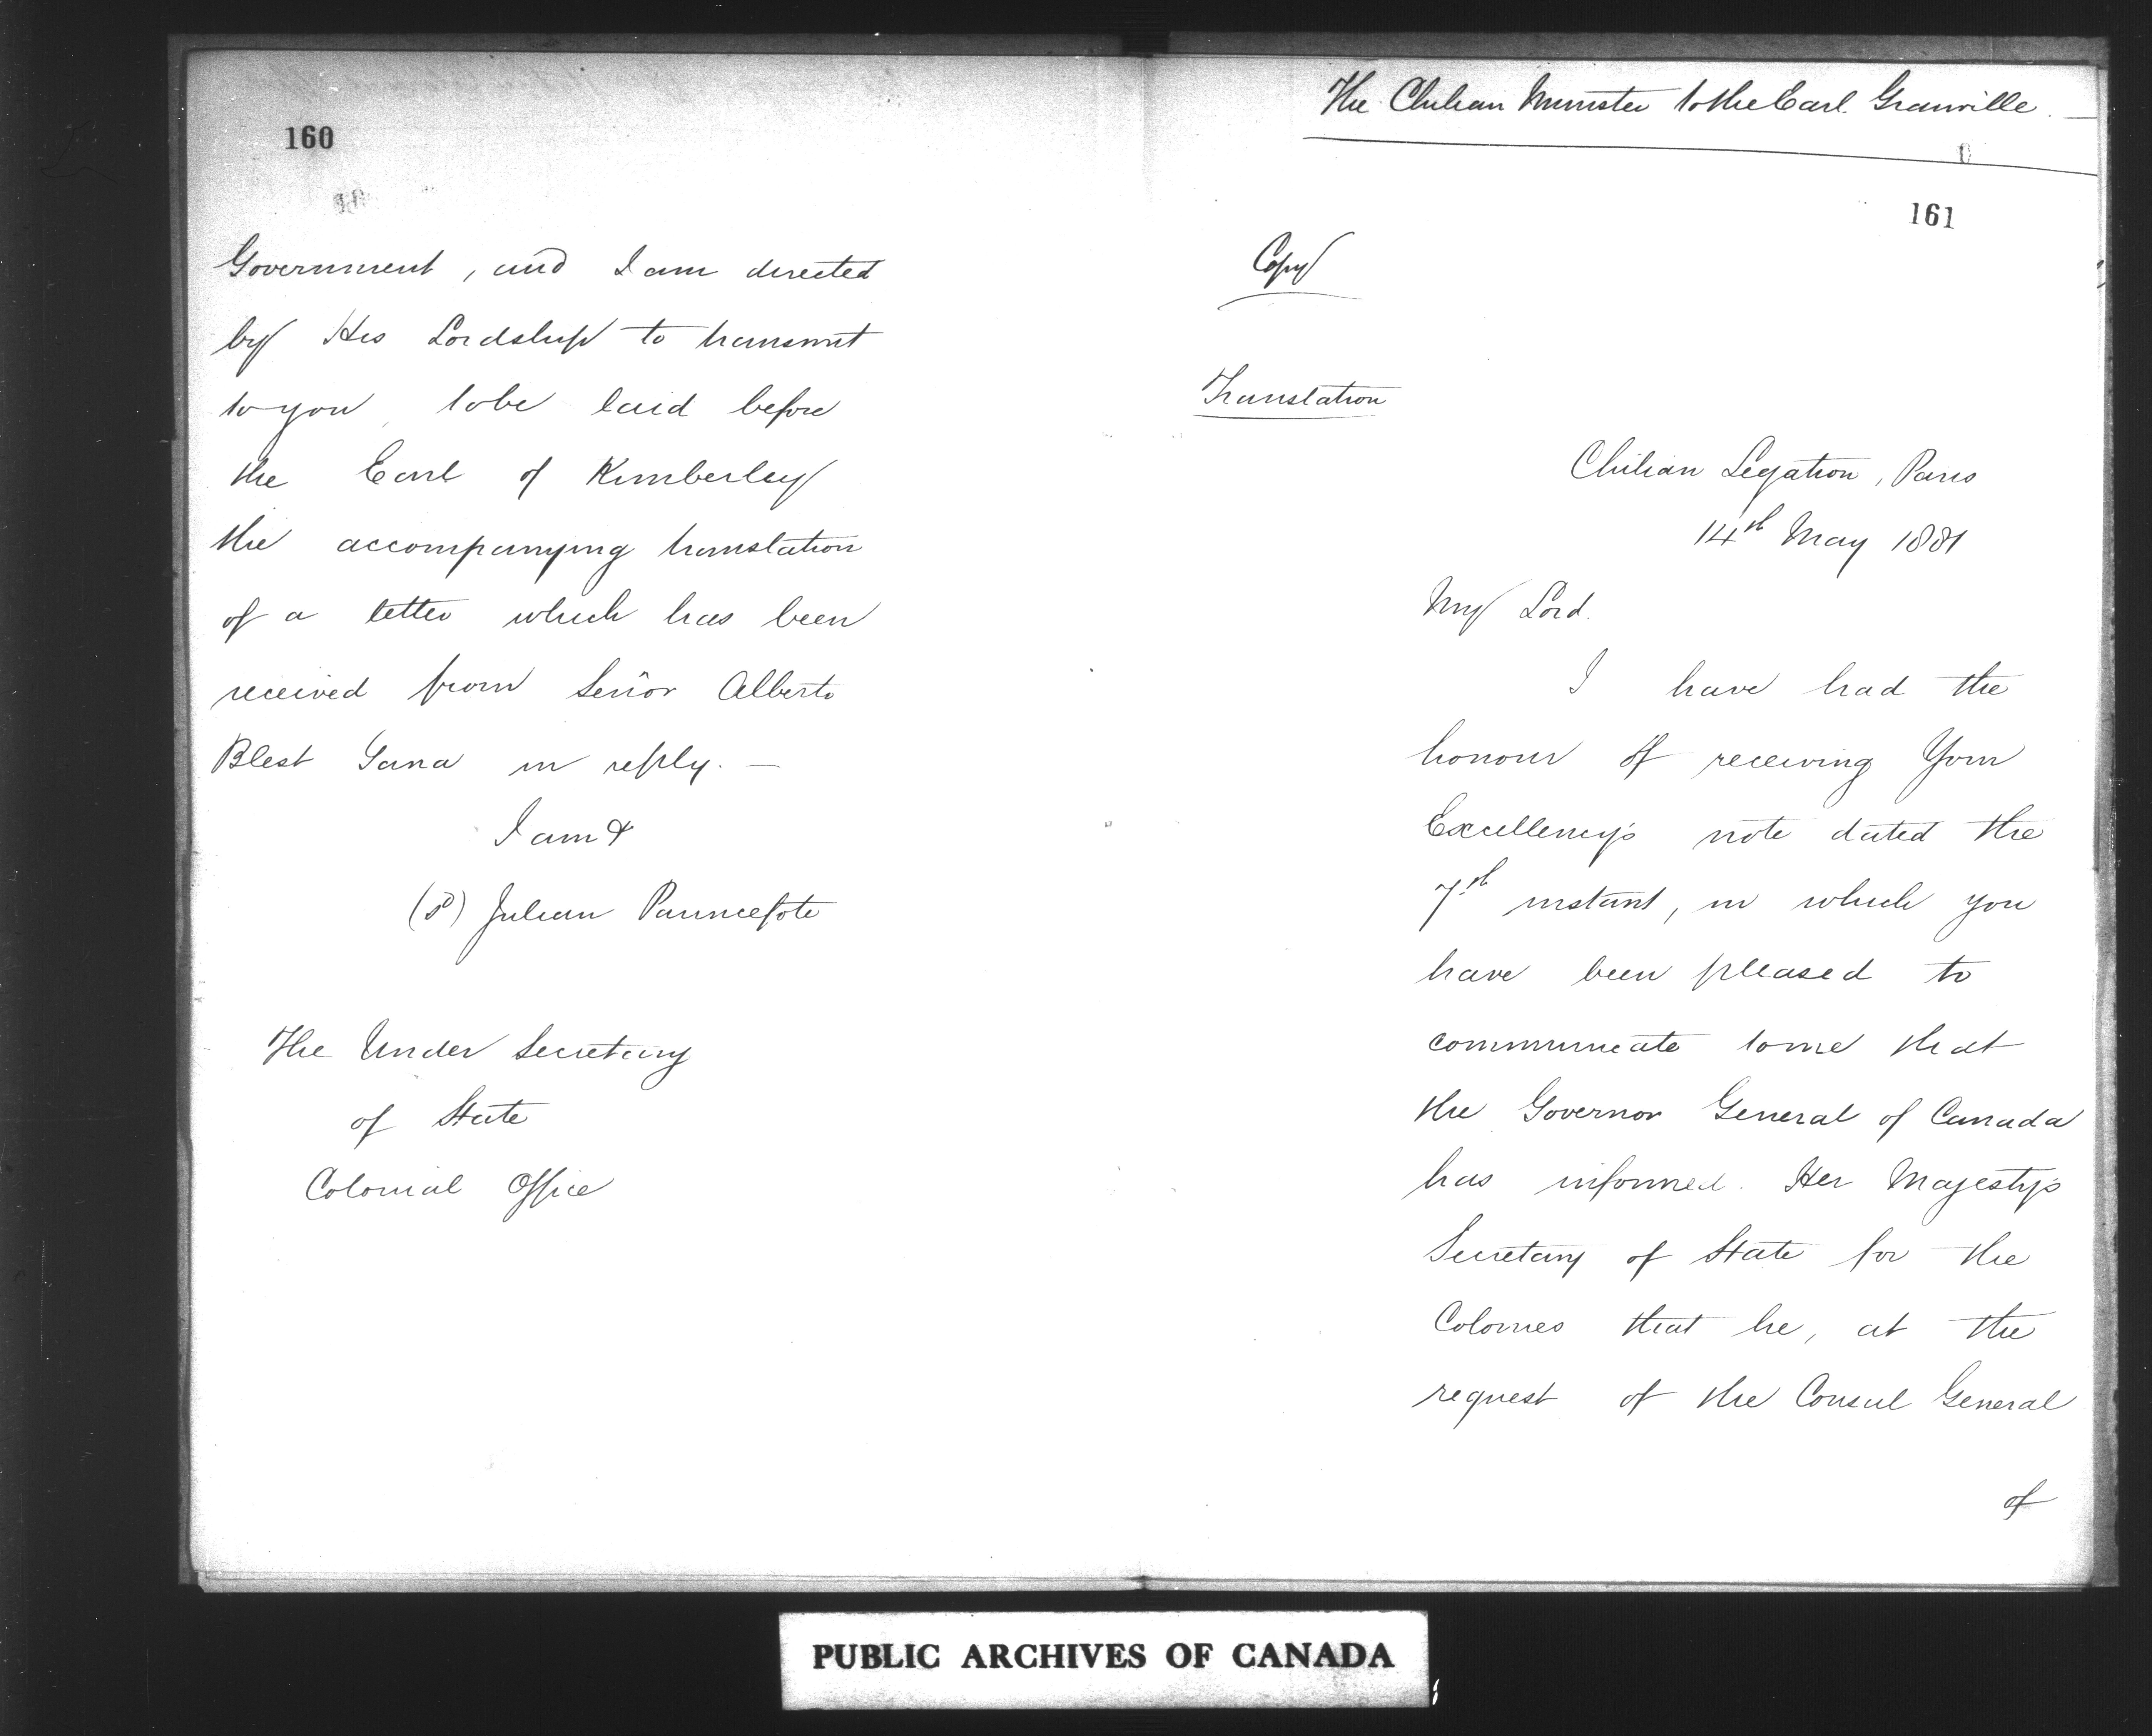 160
Government, and I am directed
by His Lordship to transmit
to you, to be laid before
the Earl of Kimberley
the accompanying translation
of a letter which has been
received from Señor Alberto
Blest Gana in reply. —
I am &
(S) Julian Pauncefote
The Under Secretary
of State
Colonial Office
The Chilian Minister to the Earl Granville.
161
Copy
Translation
Chilian Legation, Paris
14th May 1881
My Lord.
I have had the
honour of receiving Your
Excellency's note dated the
7th instant, in which you
have been pleased to
communicate to me that
the Governor General of Canada
has informed Her Majesty's
Secretary of State for the
Colonies that he, at the
request of the Consul General
of
PUBLIC ARCHIVES OF CANADA